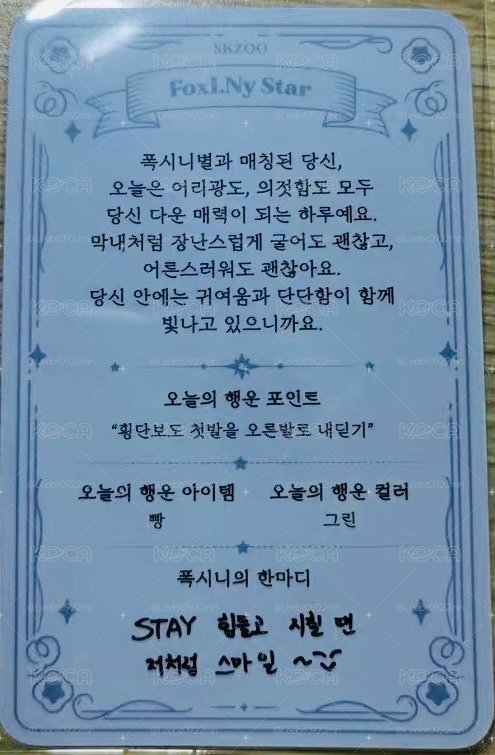 SKZOO
FoxI.Ny Star
폭시니별과 매칭된 당신,
오늘은 어리광도, 의젓함도 모두
당신 다운 매력이 되는 하루예요.
막내처럼 장난스럽게 굴어도 괜찮고,
어른스러워도 괜찮아요.
당신 안에는 귀여움과 단단함이 함께
빛나고 있으니까요.
오늘의 행운 포인트
“횡단보도 첫발을 오른발로 내딛기”
오늘의 행운 아이템 오늘의 행운 컬러
빵 그린
폭시니의 한마디
STAY 힘들고 지칠 땐
저처럼 스마일 ~
KOCA
@Leebt0922mn